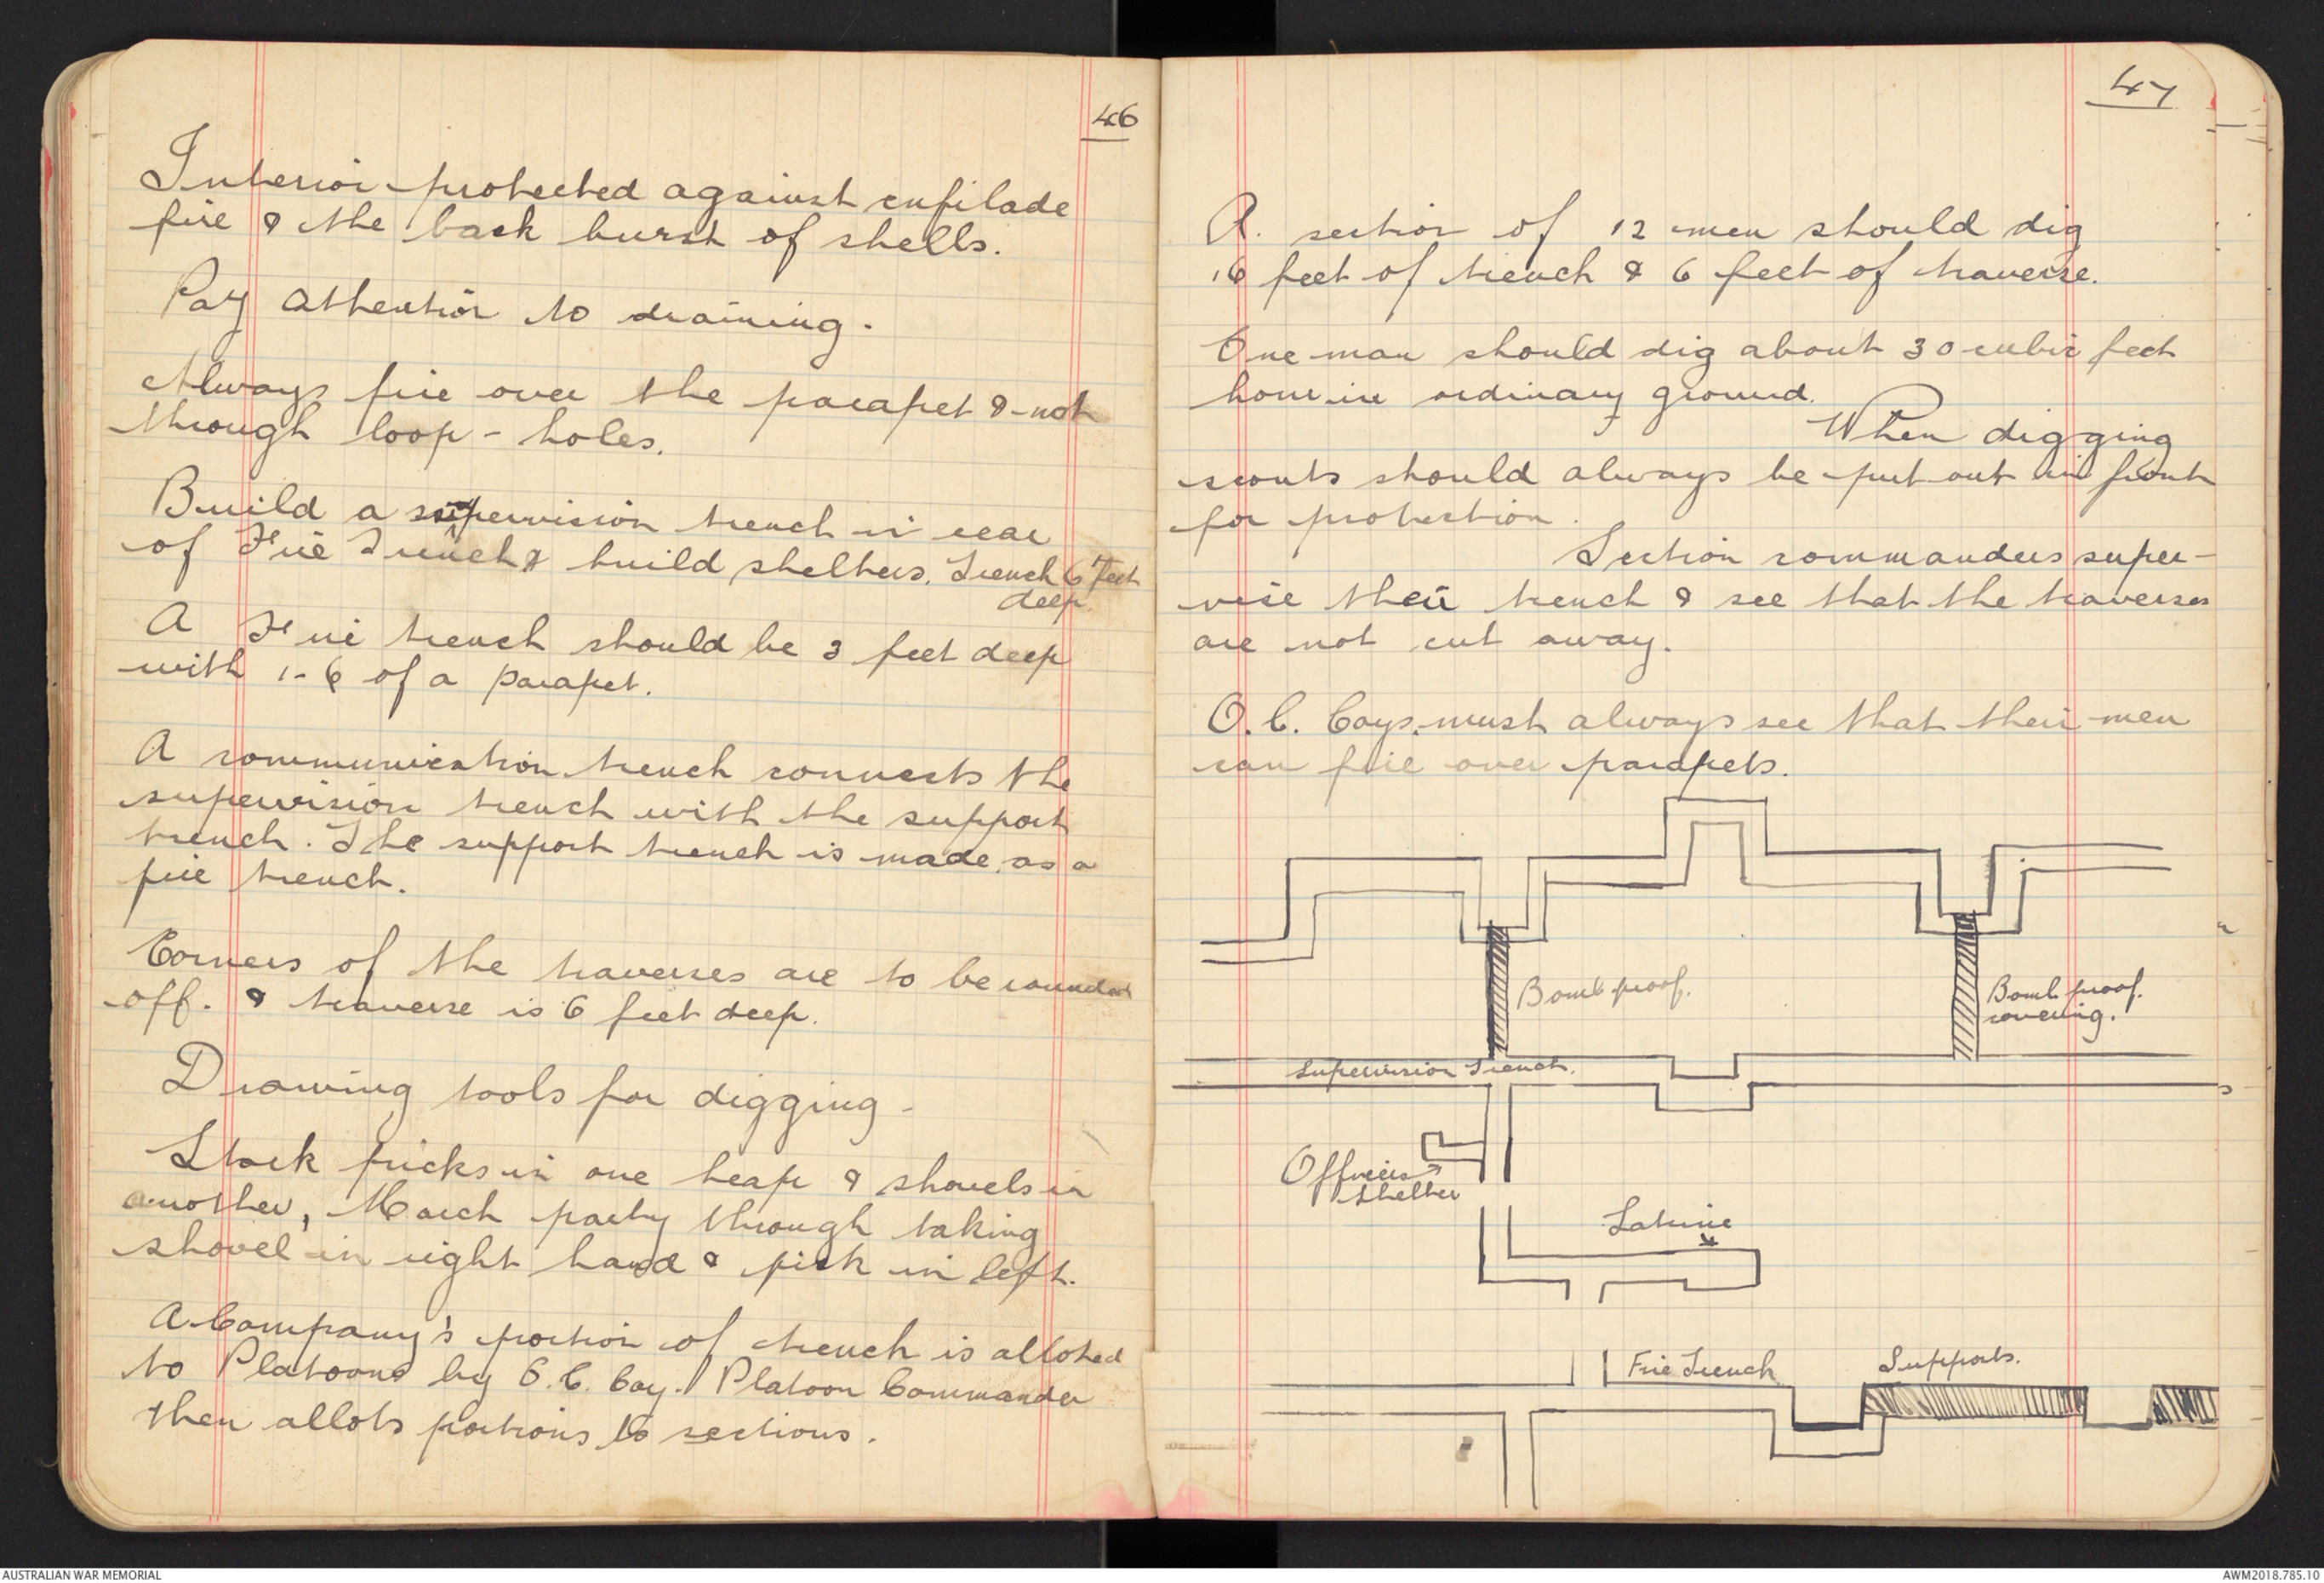 46
Interior protected against enfilade
fire & the back burst of shells.
Pay attention to draining.
Always fire over the parapet & not
through loop-holes.
Build a supervision trench in rear
of Fire Trench & build shelters. Trench 6 feet
deep.
A Fire trench should be 3 feet deep
with 1-6 of a parapet.
A communication trench connects the
supervision trench with the support
trench. The support trench is made as a
fire trench.
Corners of the traverses are to be rounded
off. & traverse is 6 feet deep.
Drawing tools for digging -
Stack picks in one heap & shovels in
another, March party through taking
shovel in right hand & pick in left.
A Company's portion of trench is alloted
to Platoons by O.C. Coy. Platoon Commander
then allots portions to sections.
47
A. section of 12 men should dig
16 feet of trench & 6 feet of traverse.
One man should dig about 30 cubic feet
hour in ordinary ground.
When digging
scouts should always be put out in front
for protection.
Section commanders super-
vise their trench & see that the traverses
are not cut away.
O.C. Coys. must always see that their men
can fire over parapets.
Bomb proof.
Bomb proof.
covering.
Supervision Trench.
Officers
Shelter
Latrine
Fire Trench
Supports.
AUSTRALIAN WAR MEMORIAL
AWM2018.785.10